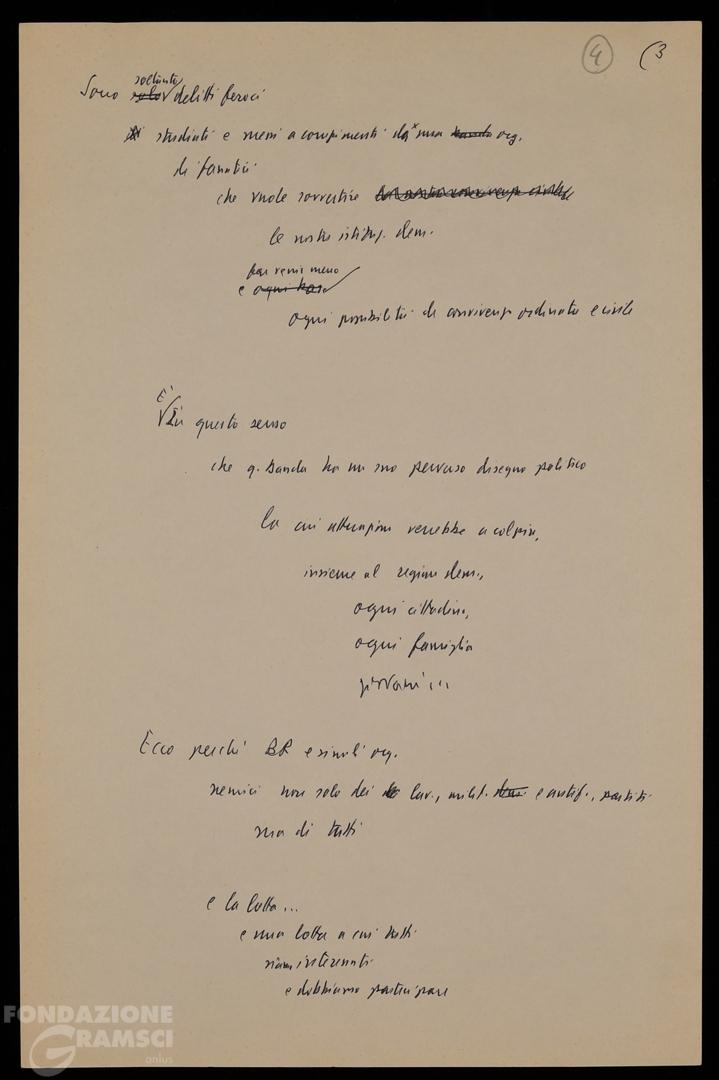 4 (3
soltanto
Sono solo delitti feroci
studiati e messi a compimento da una banda org.
di fanatici
che vuole sovvertire la nostra convivenza civile
le nostre istituz. dem.
far venir meno
e ogni base
ogni possibilità di convivenza ordinata e civile
È
in questo senso
che q. banda ha un suo perverso disegno politico
la cui attuazione verrebbe a colpire,
insieme al regime dem.,
ogni cittadino,
ogni famiglia
giovani...
Ecco perché BR e simili org.
nemici non solo dei lav., milit. e antif., partiti
ma di tutti
e la lotta...
è una lotta a cui tutti
siamo interessati
e dobbiamo partecipare
FONDAZIONE
GRAMSCI
onlus